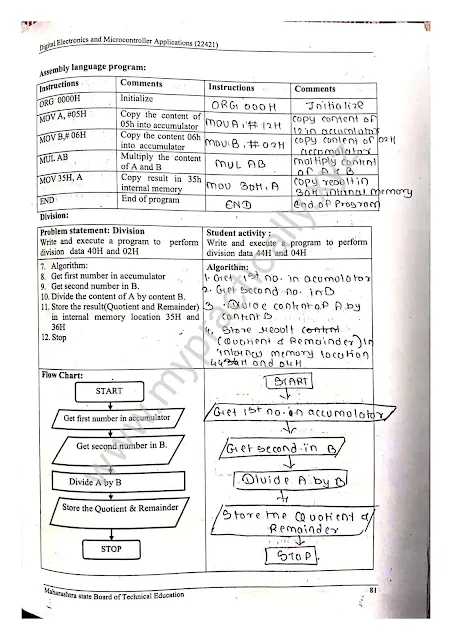 Digital Electronics and Microcontroller Applications (22421)
Assembly language program:
Instructions Comments Instructions Comments
ORG 0000H Initialize ORG 000H Initialize
MOV A, #05H Copy the content of 05h into accumulator MOV A, # 12H Copy content of 12 in accumulator
MOV B,# 06H Copy the content 06h into accumulator MOV B, # 02H Copy content of 02H accumulator
MUL AB Multiply the content of A and B MUL AB multiply content of A & B
MOV 35H, A Copy result in 35h internal memory MOV 30H, A Copy result in 30H internal memory
END End of program END End of Program
Division:
Problem statement: Division
Write and execute a program to perform
division data 40H and 02H
Student activity :
Write and execute a program to perform
division data 44H and 04H
7. Algorithm:
8. Get first number in accumulator
9. Get second number in B.
10. Divide the content of A by content B.
11. Store the result(Quotient and Remainder)
in internal memory location 35H and
36H
12. Stop
Algorithm:
1. Get 1st no. in acumolator
2. Get second no. in B
3. Divide content of A by
content B
4. Store result
(Quotient & Remainder) in
internal memory location
Flow Chart:
START
Get first number in accumulator
Get second number in B.
Divide A by B
Store the Quotient & Remainder
STOP
START
Get 1st no. in accumolator
Get second in B
Divide A by B
Store the Quotient &
Remainder
STOP
Maharashtra state Board of Technical Education 81